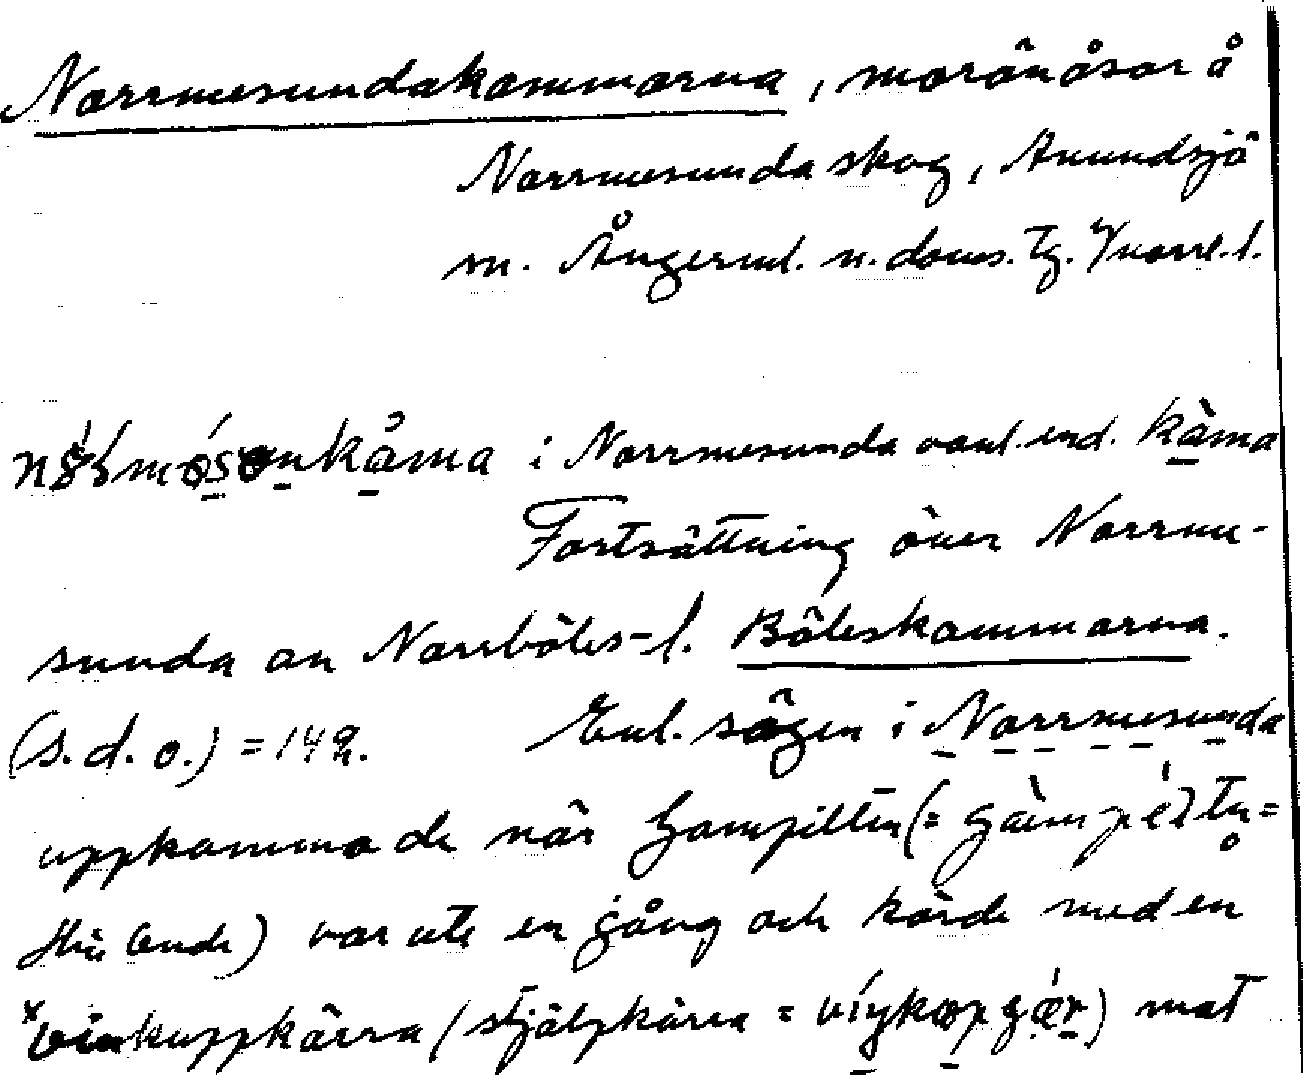 Norrmesundakammarna, moränåsar å
Norrmesunda skog, Anundsjö
m. Ångerml. n. doms. tg. Yvarrl.l.
kåma i Norrmesunda vanl. end. kàma
Fortsättning över Norrme-
sunda av Norrböles-l. Böleskammarna.
(s.d.o.) = 142. Enl. sägen i Norrmesunda
uppkommo de när Gampilten (= gàmpéltn =
Hin Onde) var ute en gång och körde med en
vinkuppkärra (stjälpkärra = víŋkopgær) mat